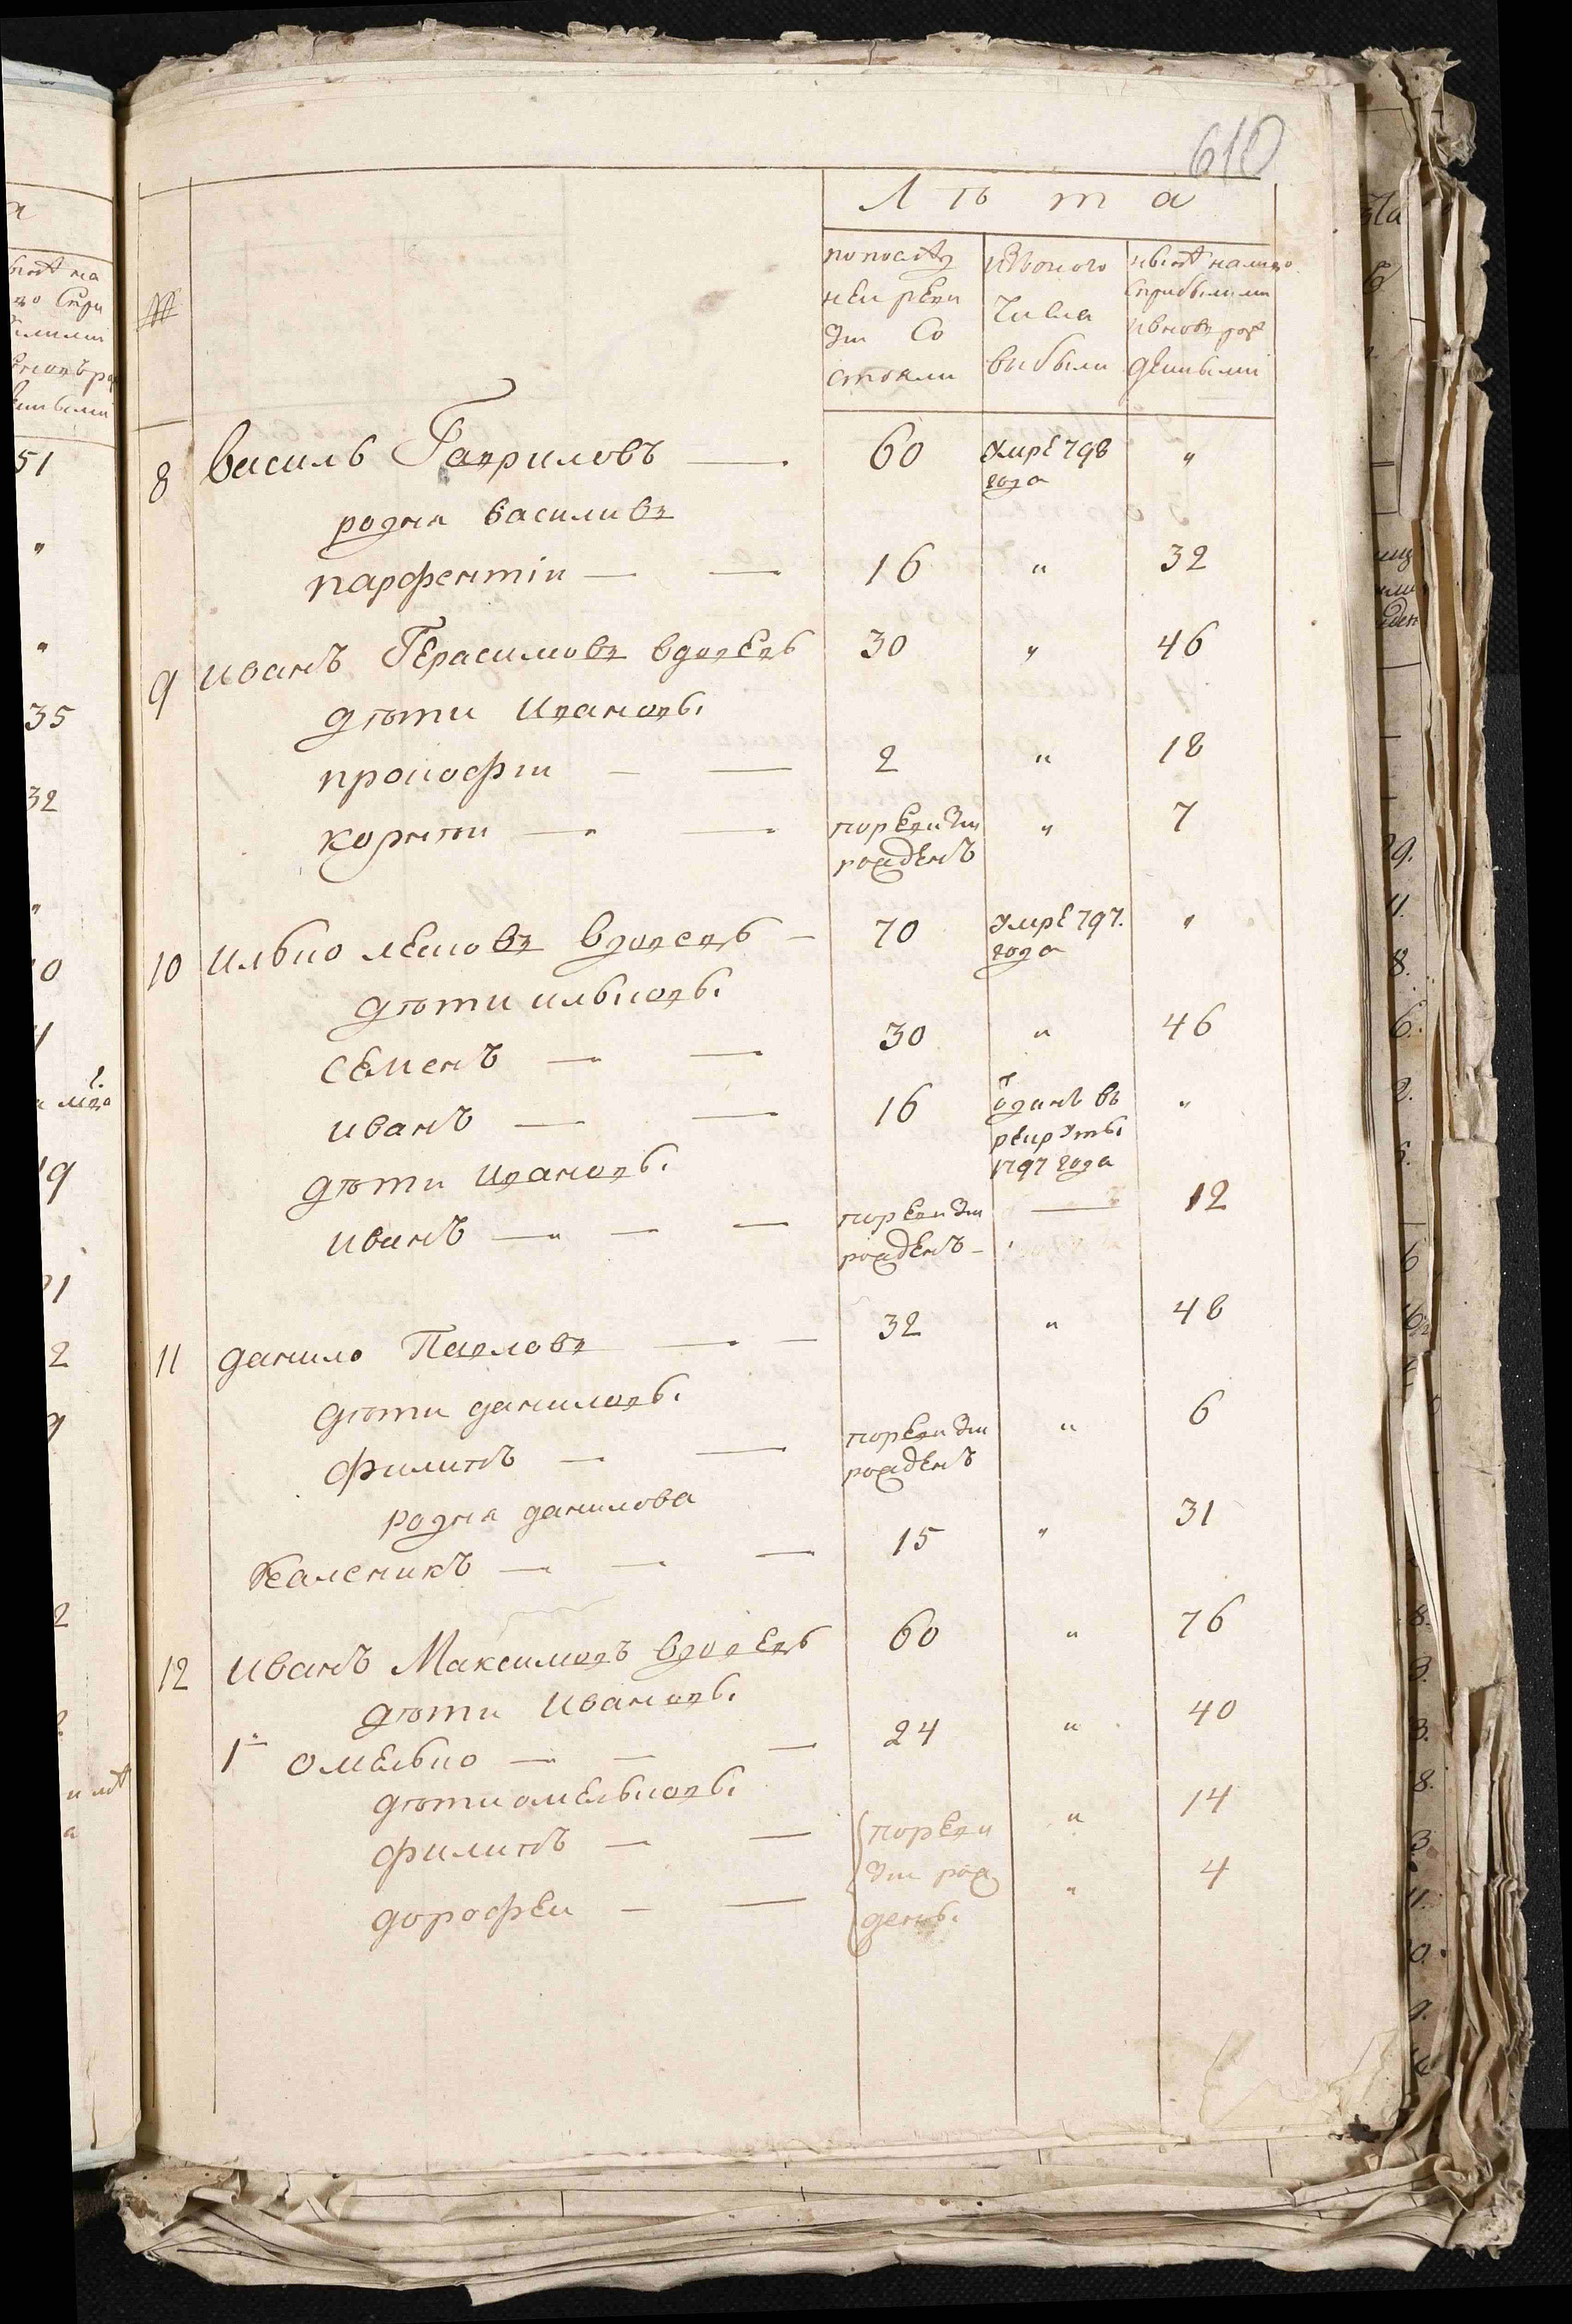 610
Лѣта
№
по послѣд
ней реви
зии Со
стояли
изъ оного
Числа
выбыли
ныне на лицо
С прибылыми
и вновь рож
денными
8 Василь Гавриловъ 60 Умре 798 "
года
родня василивъ
парфентіи 16 " 32
9 иванъ Герасимовъ вдовецъ 30 " 46
дѣти ивановы
прокофіи 2 " 18
корнѣи по ревизии " 7
рожденъ
10 илько вдовецъ 70 Умре 797. "
года
дѣти ильковы
Семенъ 30 " 46
иванъ 16 Ѿданъ въ "
рекруты
1797 года
дѣти ивановы
иванъ по ревизии 12
рожденъ
11 данило Павловъ 32 " 48
дѣти даниловы
филипъ по ревизии " 6
рожденъ
родня данилова
Каленикъ 15 " 31
12 иванъ Максимовъ вдовецъ 60 " 76
дѣти ивановы
1й омелько 24 " 40
дѣти омельковы
филипъ по реви " 14
зии рож
дорофеи дены. " 4